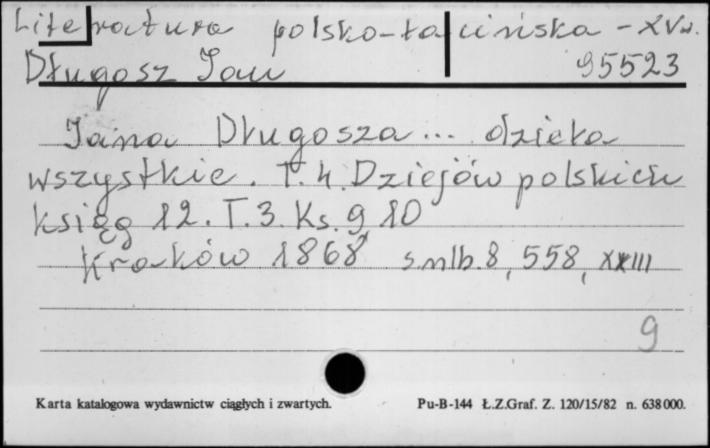 Literatura polsko-łacińska - XV w.
Długosz Jan 95523
Jana Długosza ... dzieła
wszystkie. T. 4. Dziejów polskich
ksiąg 12. T. 3. Ks. 9, 10
Kraków 1868 s. nlb. 8, 558, XXIII
9
Karta katalogowa wydawnictw ciągłych i zwartych. Pu-B-144 Ł.Z.Graf. Z. 120/15/82 n. 638 000.